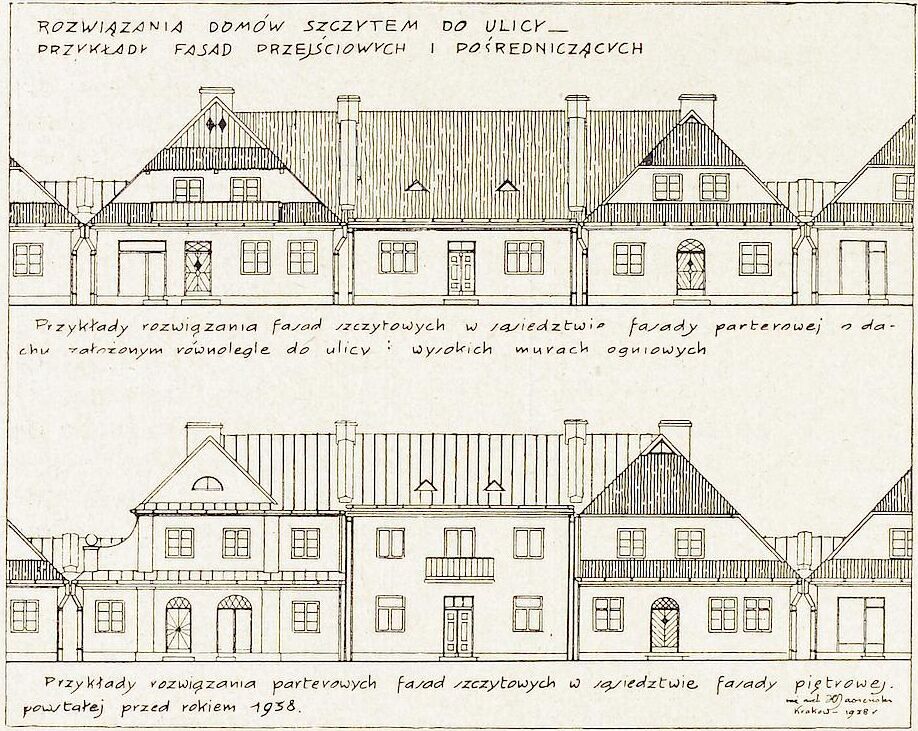 ROZWIĄZANIA DOMÓW SZCZYTEM DO ULICY —
PRZYKŁADY FASAD PRZEJŚCIOWYCH I POŚREDNICZĄCYCH
Przykłady rozwiązania fasad szczytowych w sąsiedztwie fasady parterowej o da-
chu założonym równolegle do ulicy i wysokich murach ogniowych
Przykłady rozwiązania parterowych fasad szczytowych w sąsiedztwie fasady piętrowej.
powstałej przed rokiem 1938.
Kraków – 1938 r